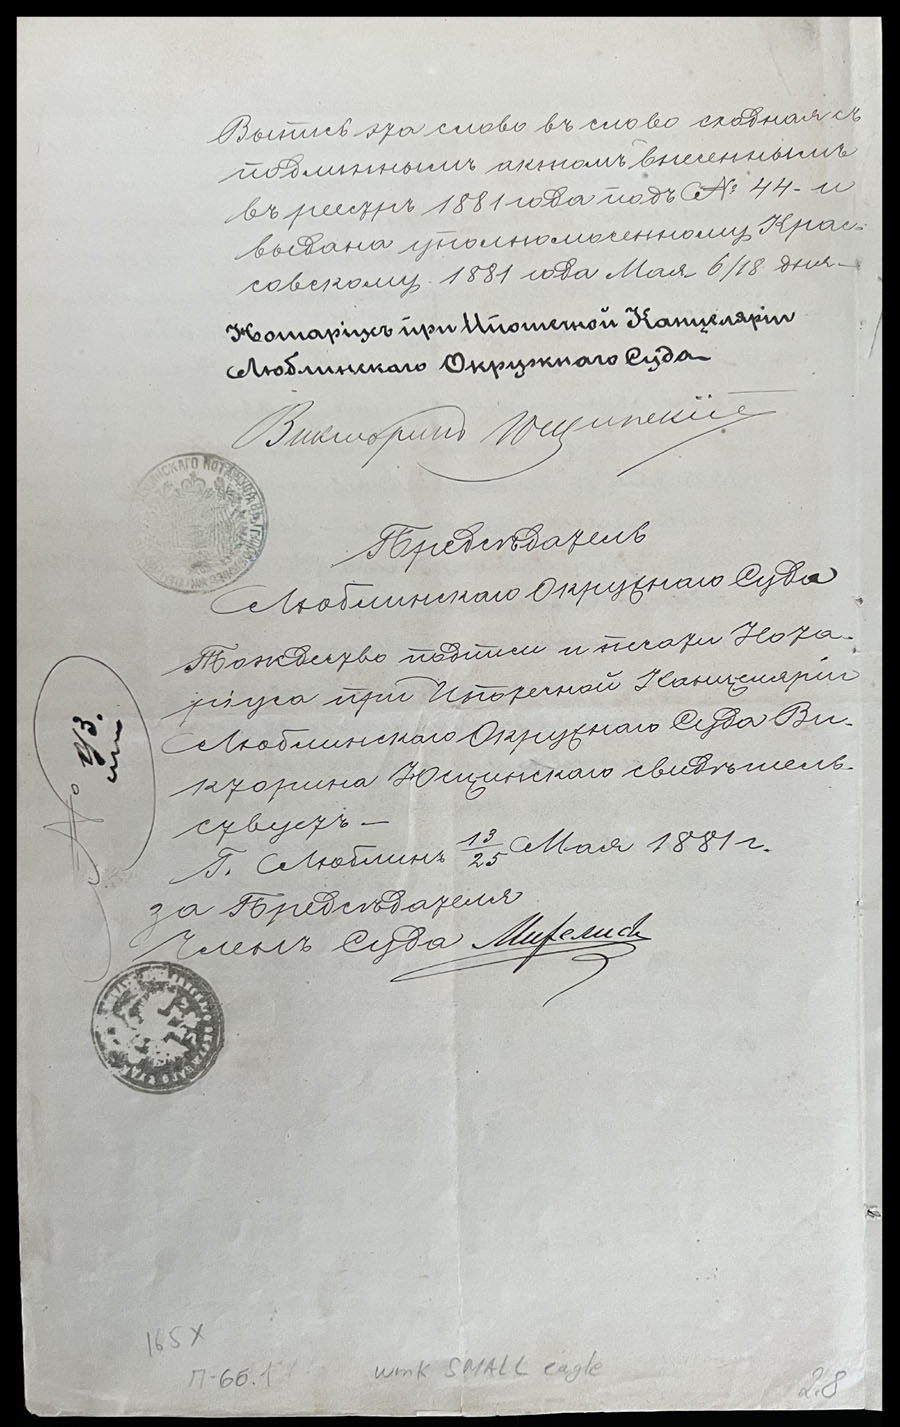 Выпись эта слово въ слово сходная съ
подлиннымъ актомъ внесеннымъ
въ реестръ 1881 года подъ № 44 - и
выдана уполномоченному Крас-
совскому 1881 года Мая 6/18 дня -
Нотаріусъ при Ипотечной Канцеляріи
Люблинскаго Окружнаго Суда
Викторинъ Ющинскій
Предсѣдатель
Люблинскаго Окружнаго Суда
Тождество подписи и печати Нота-
ріуса при Ипотечной Канцеляріи
Люблинскаго Окружнаго Суда Ви-
кторина Ющинскаго свидѣтель-
ствуетъ -
Г. Люблинъ 13/25 Мая 1881 г.
за Предсѣдателя
Членъ Суда
№
165X
П-6б.1
wmk SMALL eagle
2.8